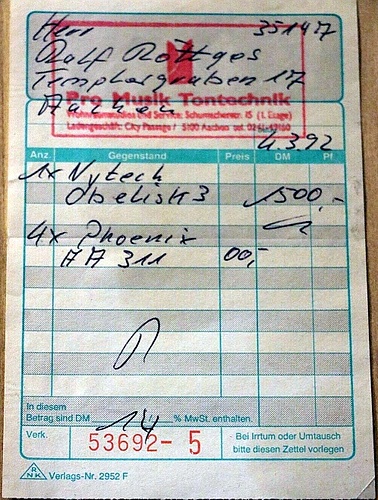 Herr 351477
Ralf Röttges
Templergraben 17
Aachen
Pro Musik Tontechnik
Ladengeschäft: City Passage / 5100 Aachen tel.
4.3.92
Anz. Gegenstand Preis DM Pf
1x Nytech
Obelisk 3 1500,-
4x Phoenix
AA 311 00,-
In diesem
Betrag sind DM 14 % MwSt. enthalten.
Verk. 53692- 5 Bei Irrtum oder Umtausch
bitte diesen Zettel vorlegen
RNK Verlags-Nr. 2952 F